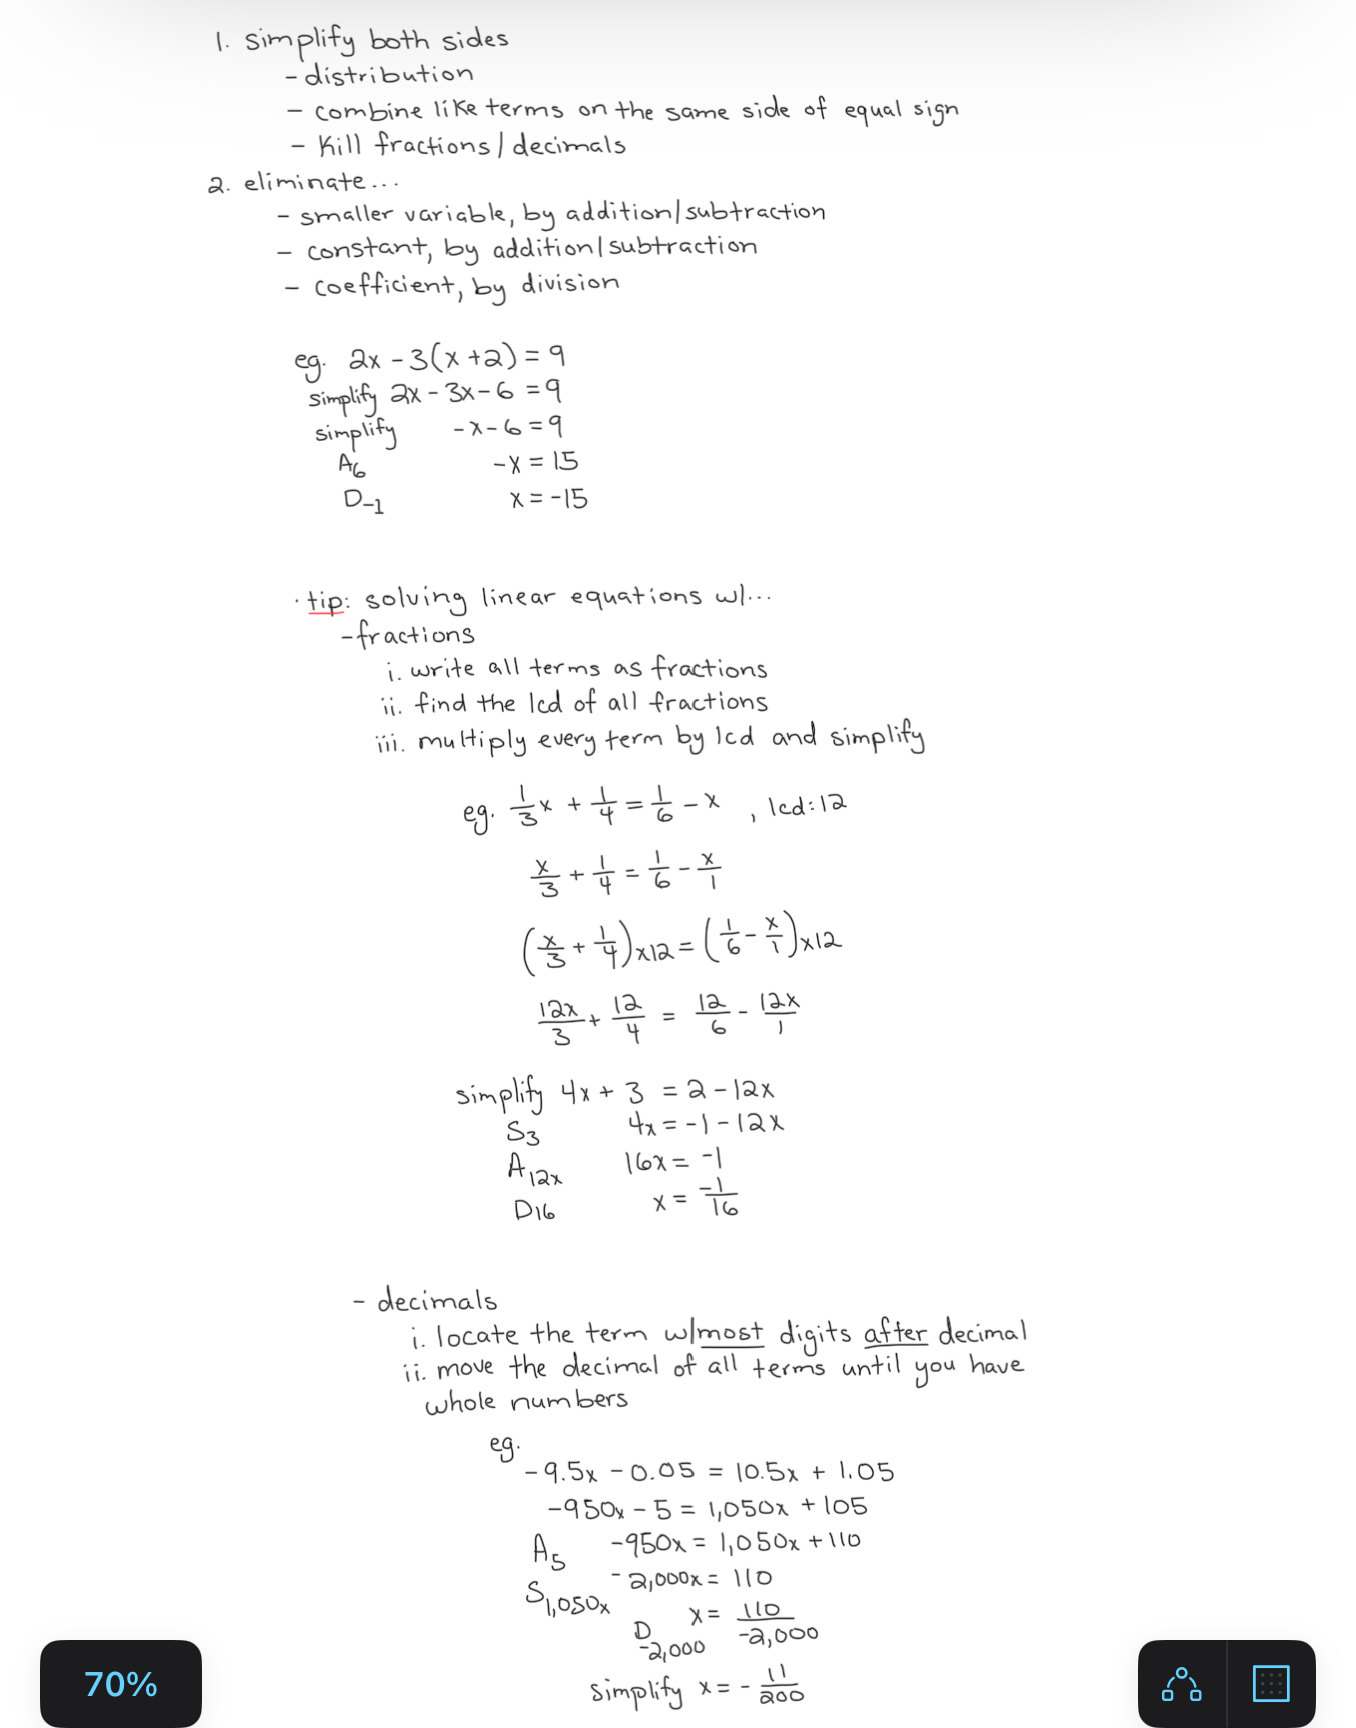 1. simplify both sides
- distribution
- combine like terms on the same side of equal sign
- Kill fractions/decimals
2. eliminate...
- smaller variable, by addition/subtraction
- constant, by addition/subtraction
- coefficient, by division
eg. 2x - 3(x + 2) = 9
simplify 2x - 3x - 6 = 9
simplify -x - 6 = 9
A₆ -x = 15
D₋₁ x = -15
· tip: solving linear equations w/...
- fractions
i. write all terms as fractions
ii. find the lcd of all fractions
iii. multiply every term by lcd and simplify
eg. 1/3 x + 1/4 = 1/6 - x , lcd: 12
x/3 + 1/4 = 1/6 - x/1
(x/3 + 1/4)x12 = (1/6 - x/1)x12
12x/3 + 12/4 = 12/6 - 12x/1
simplify 4x + 3 = 2 - 12x
S₃ 4x = -1 - 12x
A₁₂ₓ 16x = -1
D₁₆ x = -1/16
- decimals
i. locate the term w/most digits after decimal
ii. move the decimal of all terms until you have
whole numbers
eg.
-9.5x - 0.05 = 10.5x + 1.05
-950x - 5 = 1,050x + 105
A₅ -950x = 1,050x + 110
S₁,₀₅₀ₓ -2,000x = 110
D₋₂,₀₀₀ x = 110/-2,000
simplify x = - 11/200
70%